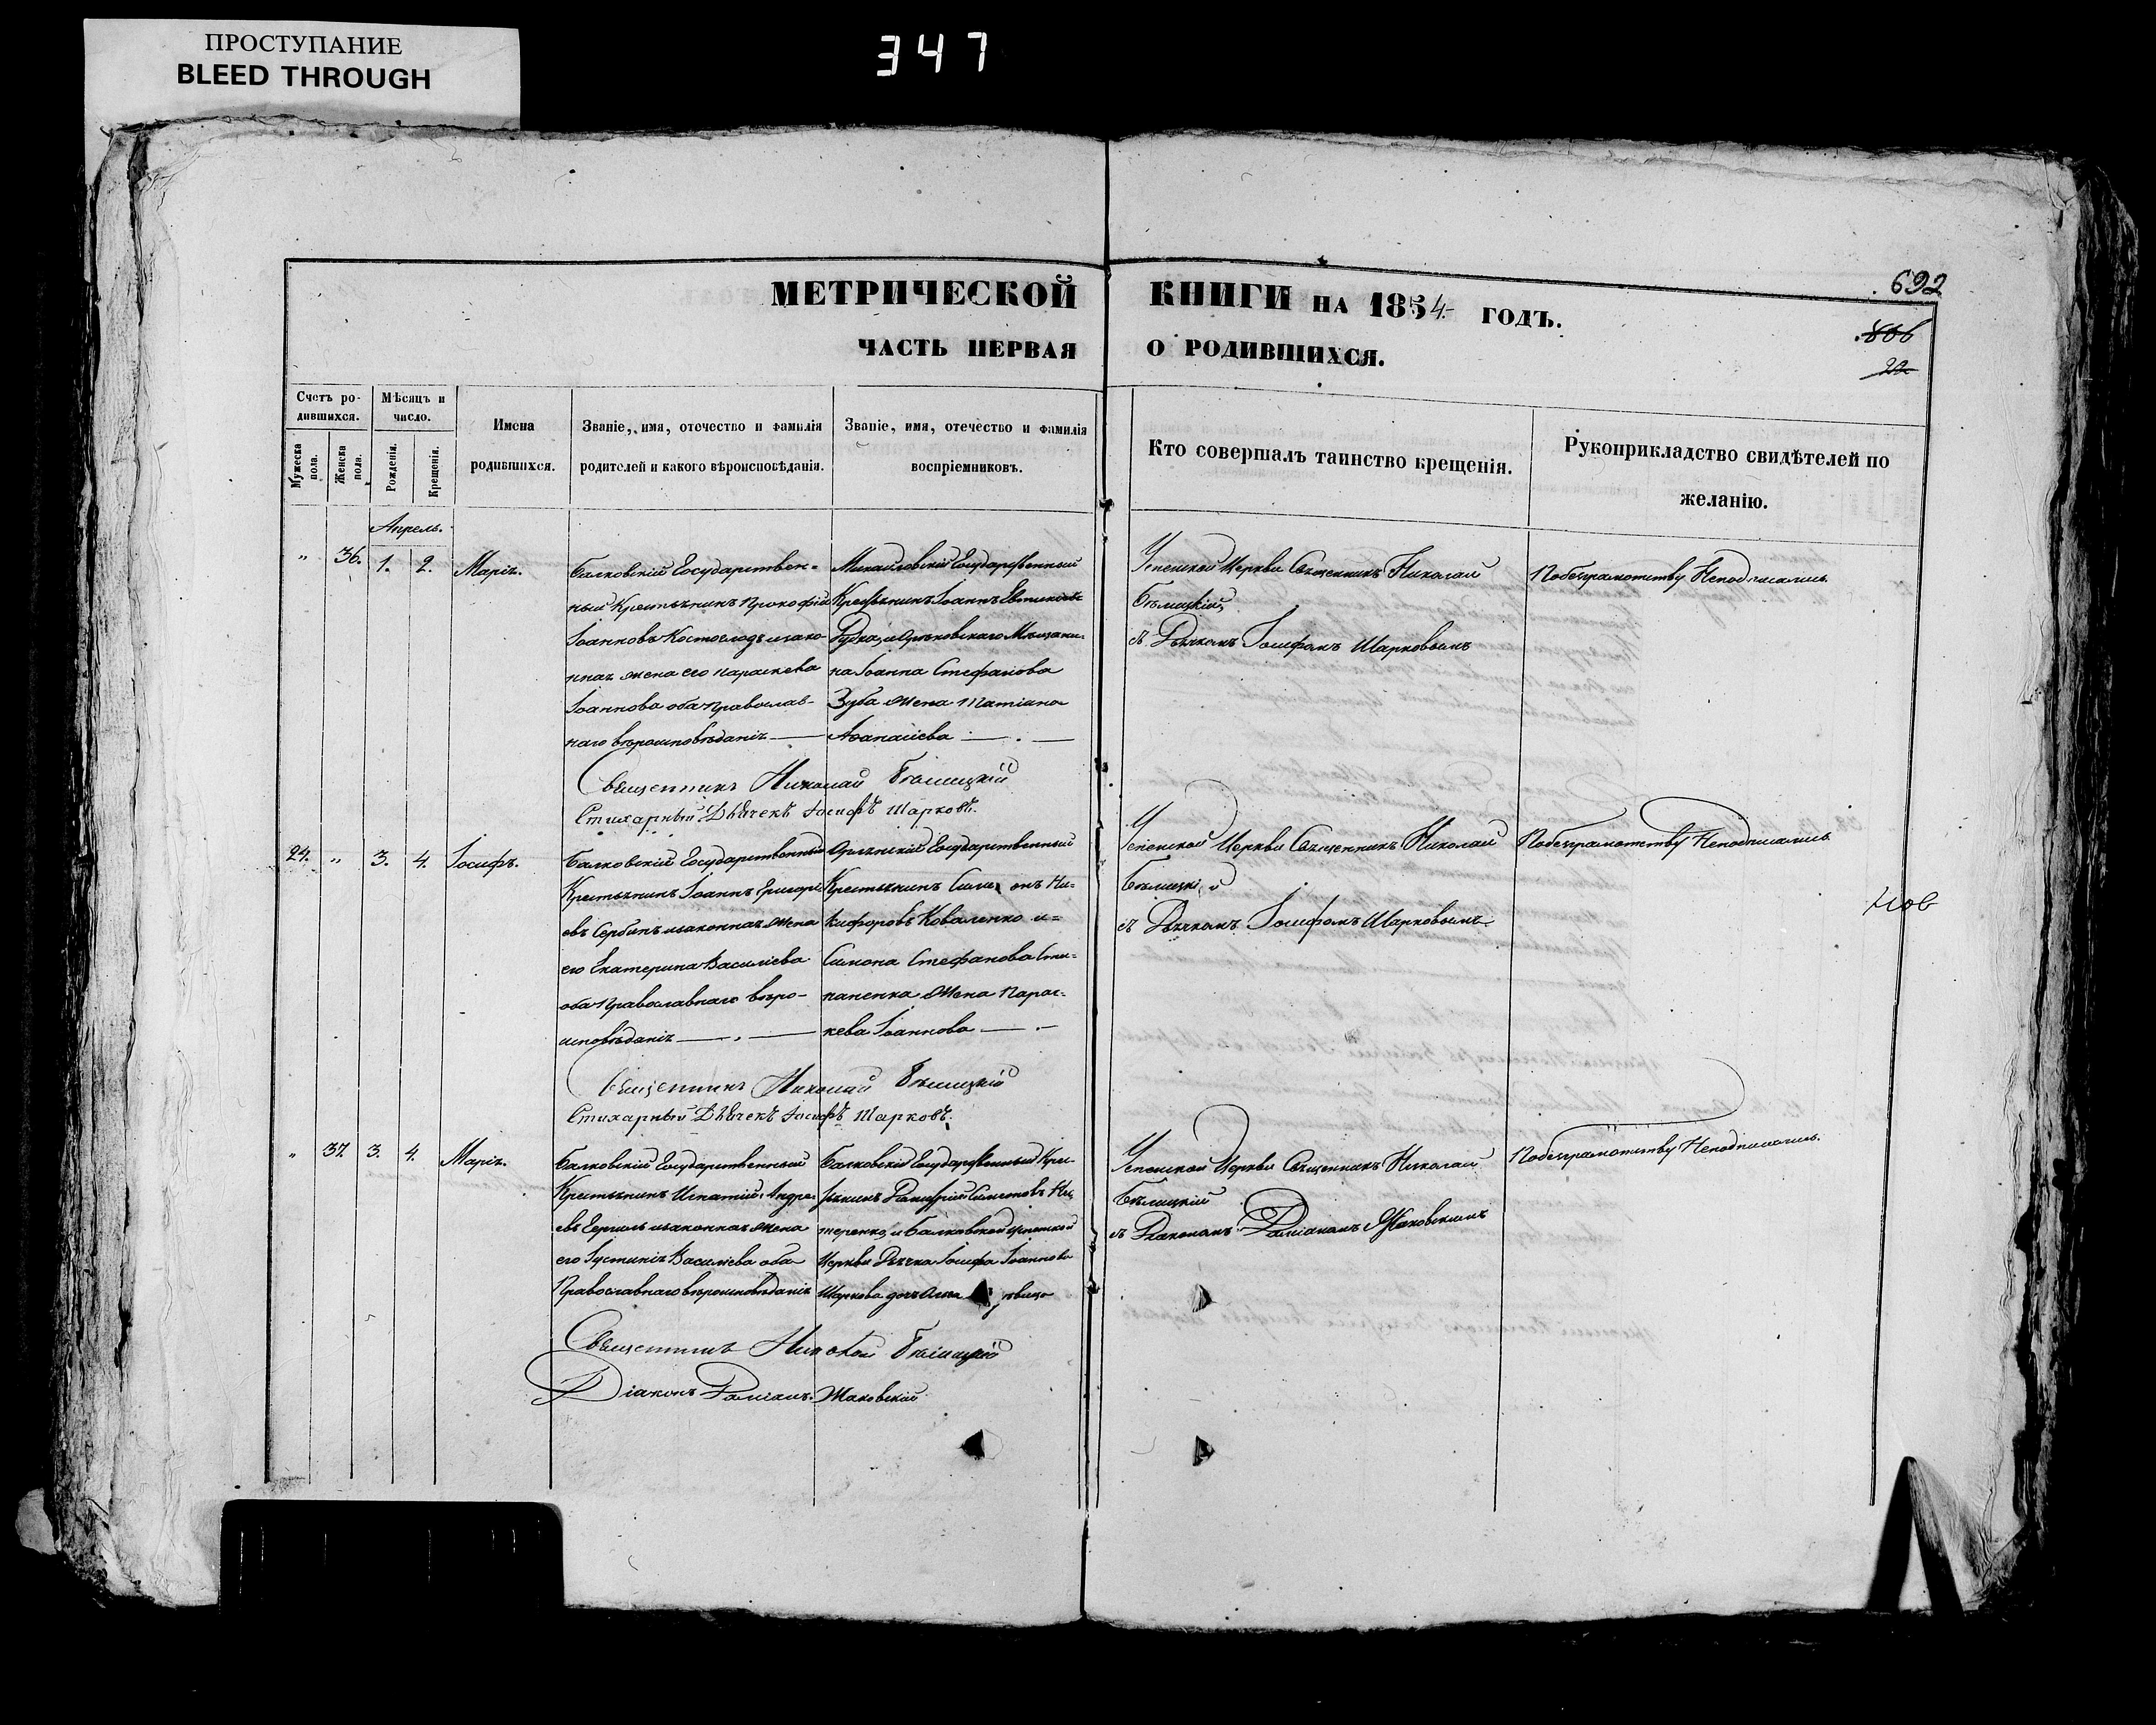 ПРОСТУПАНИЕ
BLEED THROUGH
347
МЕТРИЧЕСКОЙ КНИГИ НА 1854 ГОДЪ.
692
ЧАСТЬ ПЕРВАЯ О РОДИВШИХСЯ.
806
22
Счетъ родившихся.
Мужеска пола.
Женска пола.
Мѣсяцъ и число.
Рожденія.
Крещенія.
Имена
родившихся.
Званіе, имя, отечество и фамилія
родителей и какого вѣроисповѣданія.
Званіе, имя, отечество и фамилія
воспріемниковъ.
Кто совершалъ таинство крещенія.
Рукоприкладство свидѣтелей по
желанію.
Апрель.
" 36. 1. 2. Марія.
Балковскій Государствен=
ный Крестьянинъ Прокофій
Іоанновъ Костоглодъ изако-
нная жена его Параскева
Іоаннова оба православ-
наго вѣроисповѣданія
Михайловскій Государственный
Крестьянинъ Іоаннъ
Гудка, и Орѣховскаго Мѣщани-
на Іоанна Стефанова
Зуба жена Татіана
Аѳанасіева
Успенской Церкви Священникъ Николай
Бѣлицкій,
съ Дьячкомъ Іосифомъ Шарковымъ
Побезграмотству Неподписались.
Священникъ Николай Бѣлицкій
Стихарный Дьячекъ Іосифъ Шарковъ.
24. " 3. 4. Іосифъ.
Балковскій Государственный
Крестьянинъ Іоаннъ Григорі
евъ Сербинъ изаконная жена
его Екатерина Василіева
оба Православнаго вѣро-
исповѣданія
Орлянскій Государственный
Крестьянинъ Симеонъ Ни=
кифоровъ Коваленко и=
Симона Стефанова Сте=
паненка жена Парас=
кева Іоаннова
Успенской Церкви Священникъ Николай
Бѣлицкій
съ Дьячкомъ Іосифомъ Шарковымъ
Побезграмотству Неподписались
Священникъ Николай Бѣлицкій
Стихарный Дьячекъ Іосифъ Шарковъ.
" 37. 3. 4. Марія.
Балковскій Государственный
Крестьянинъ Игнатій Андре
евъ изаконная жена
его Іустинія Василіева оба
Православнаго вѣроисповѣданія
Балковскій Государственный Крес-
тьянинъ Симеоновъ Не
теренко, и Балковской Успенской
Церкви Дьячка Іосифа Іоаннова
Шаркова дочь
Успенской Церкви Священникъ Николай
Бѣлицкій
съ Діакономъ Даміаномъ Жаковскимъ
Побезграмотству Неподписались.
Священникъ Николай Бѣлицкій
Діаконъ Даміанъ Жаковскій